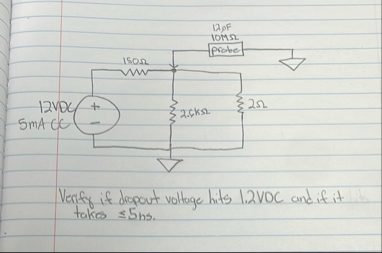 12pF
10MΩ
probe
150Ω
12VDC
+
5mA CC
−
2.6kΩ
2Ω
Verify if dropout voltage hits 1.2VDC and if it
takes ≤5ns.